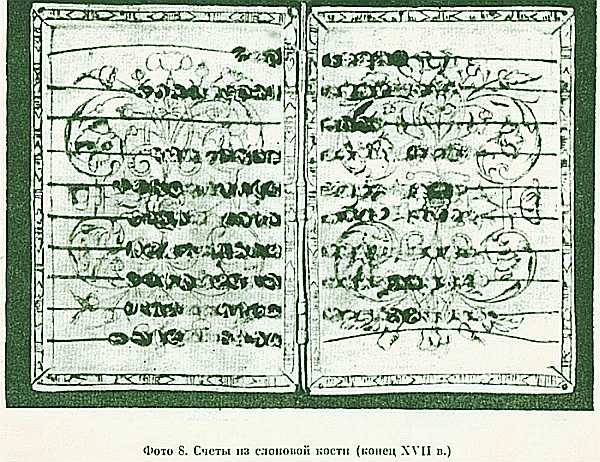 Фото 8. Счеты из слоновой кости (конец XVII в.)